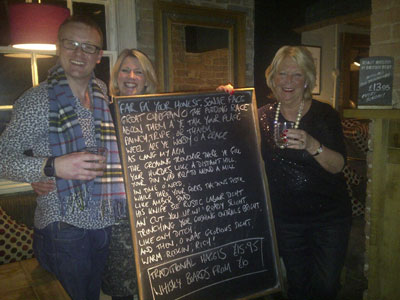 FAIR FA' YOUR HONEST, SONSIE FACE
GREAT CHIEFTAIN O' THE PUDDING RACE
ABOON THEM A' YE TAK YOUR PLACE
PAINCH, TRIPE, OR THAIRM
WEEL ARE YE WORDY O' A GRACE
AS LANG'S MY ARM
THE GROANING TRENCHER THERE YE FILL
YOUR HURDIES LIKE A DISTANT HILL
YOUR PIN WAD HELP TO MEND A MILL
IN TIME O' NEED
WHILE THRO' YOUR PORES THE DEWS DISTIL
LIKE AMBER BEAD
HIS KNIFE SEE RUSTIC LABOUR DIGHT
AND CUT YOU UP WI' READY SLIGHT
TRENCHING YOUR GUSHING ENTRAILS BRIGHT
LIKE ONY DITCH
AND THEN, O WHAT GLORIOUS SIGHT
WARM REEKIN, RICH!
TRADITIONAL HAGGIS £15.95
WHISKY BOARDS FROM £6
£13.95